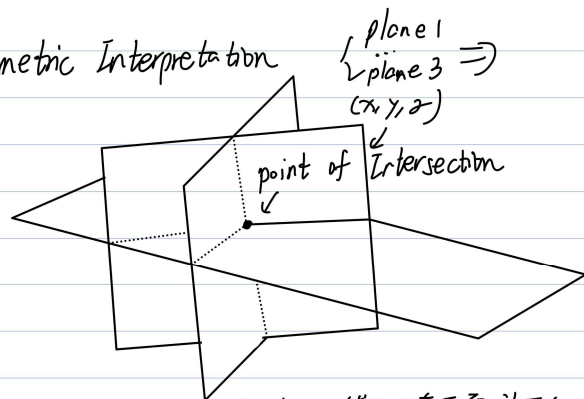 metric Interpretation
plane 1
...
plane 3 ⇒
(x, y, z)
point of Intersection